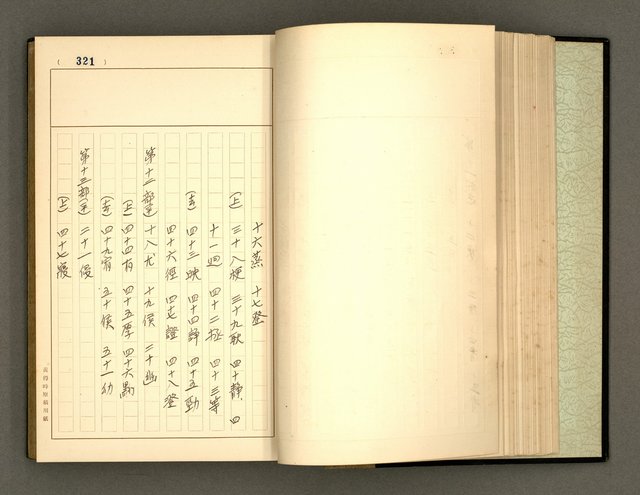 ( 321 )
十六蒸 十七登
(上) 三十八梗 三十九耿 四十靜 四
十一迥 四十二拯 四十三等
(去) 四十三映 四十四諍 四十五勁
四十六徑 四十七證 四十八澄
第十二部(平) 十八尤 十九侯 二十幽
(上) 四十四有 四十五厚 四十六黝
(去) 四十九宥 五十候 五十一幼
第十三部(平) 二十一侵
(上) 四十七寢
黃得時原稿用紙